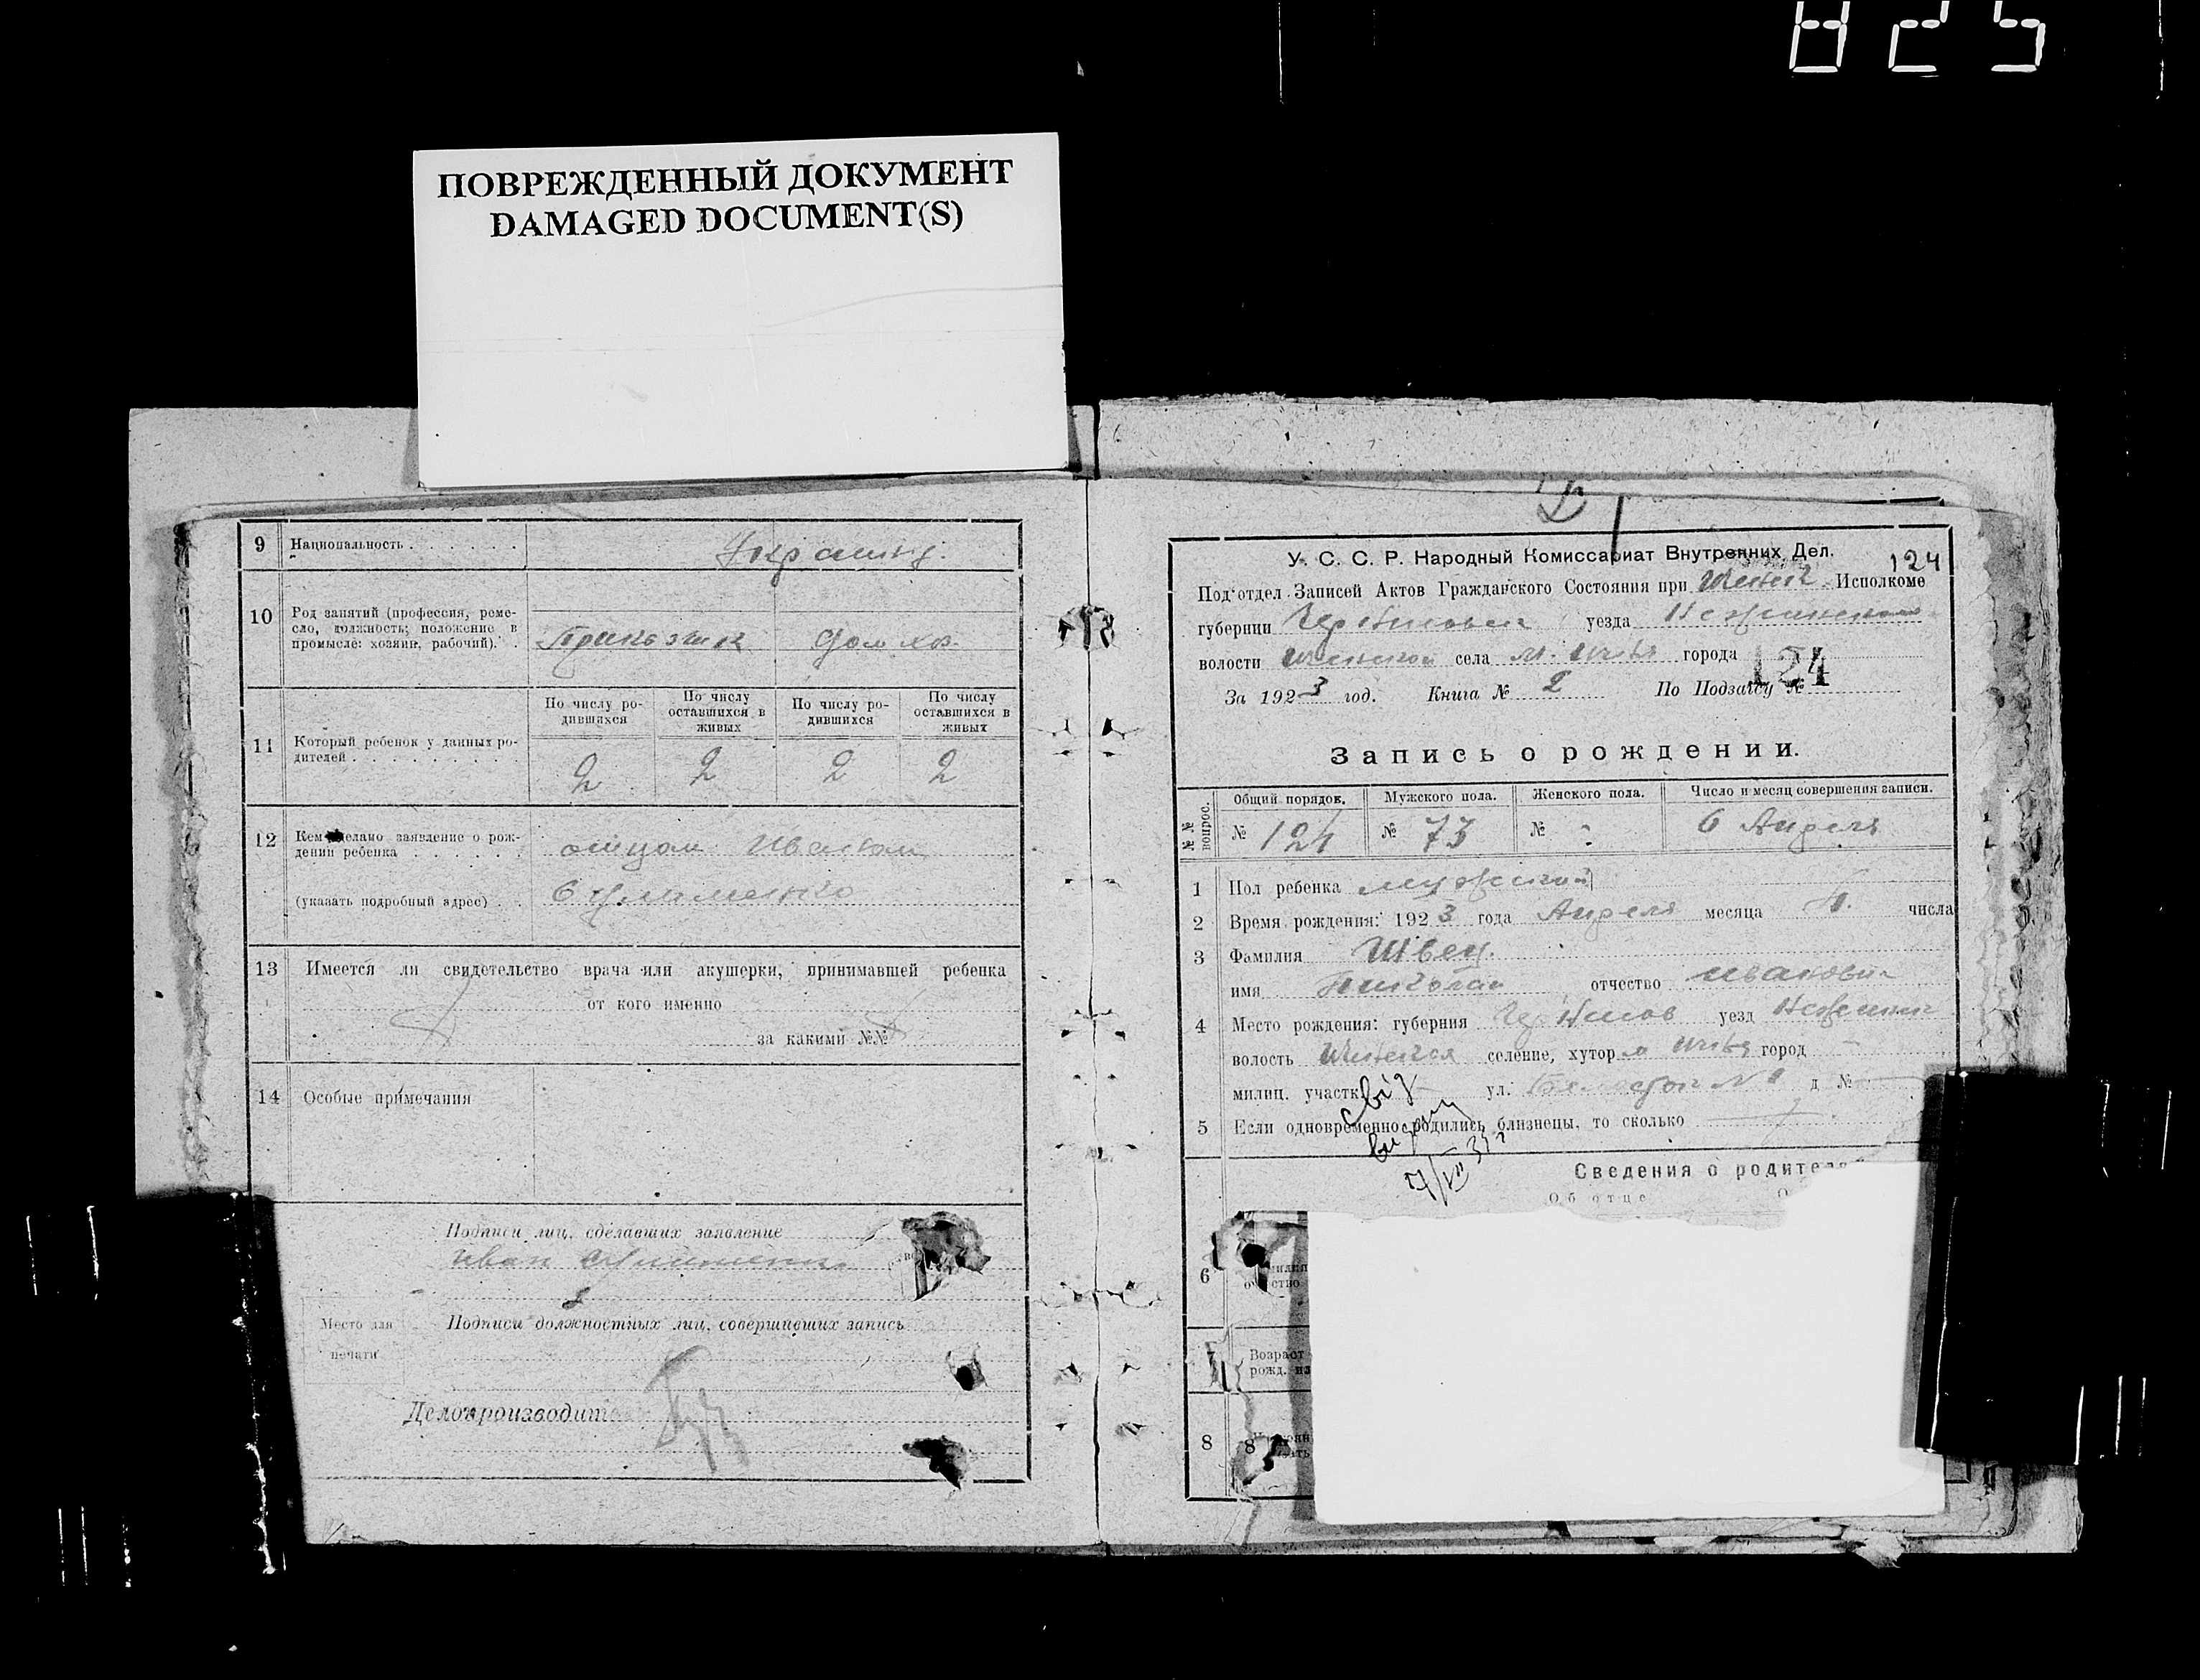 825
ПОВРЕЖДЕННЫЙ ДОКУМЕНТ
DAMAGED DOCUMENT(S)
9 Национальность . . . . . .
10 Род занятий (профессия, реме-
сло, должность; положение в
промысле: хозяин, рабочий). .
Приказчик дом. хоз.
По числу ро-
дившихся
По числу
оставшихся в
живых
По числу ро-
дившихся
По числу
оставшихся в
живых
11 Который ребенок у данных ро-
дителей . . . . . . . . .
2 2 2 2
12 Кем сделано заявление о рож-
дении ребенка . . . . . . отцом Иваном
(указать подробный адрес) . .
13 Имеется ли свидетельство врача или акушерки, принимавшей ребенка
от кого именно
за какими №№
14 Особые примечания
Подписи лиц, сделавших заявление
Иван
Место для
печати
Подписи должностных лиц, совершивших запись
Делопроизводит
У. С. С. Р. Народный Комиссариат Внутренних Дел. 124
Под'отдел Записей Актов Гражданского Состояния при Исполкоме
губернии Чернигович уезда Нежинском
волости села м. города
124
За 1923 год. Книга № 2 По Подзагсу №
Запись о рождении.
№№ вопрос.
Общий порядок. Мужского пола. Женского пола. Число и месяц совершения записи.
№ 124 № 73 № - 6 Апреля
1 Пол ребенка мужской
2 Время рождения: 1923 года Апреля месяца числа
3 Фамилия Швец.
имя Николай отчество Иванович
4 Место рождения: губерния Чернигов уезд Нежинск
волость селение, хутор м город
милиц. участк ул. д №
5 Если одновременно родились близнецы, то сколько
свід
видан
Сведения о родител
Об отце О
6 милия
отчество
7 Возраст
рожд. ил
8
8